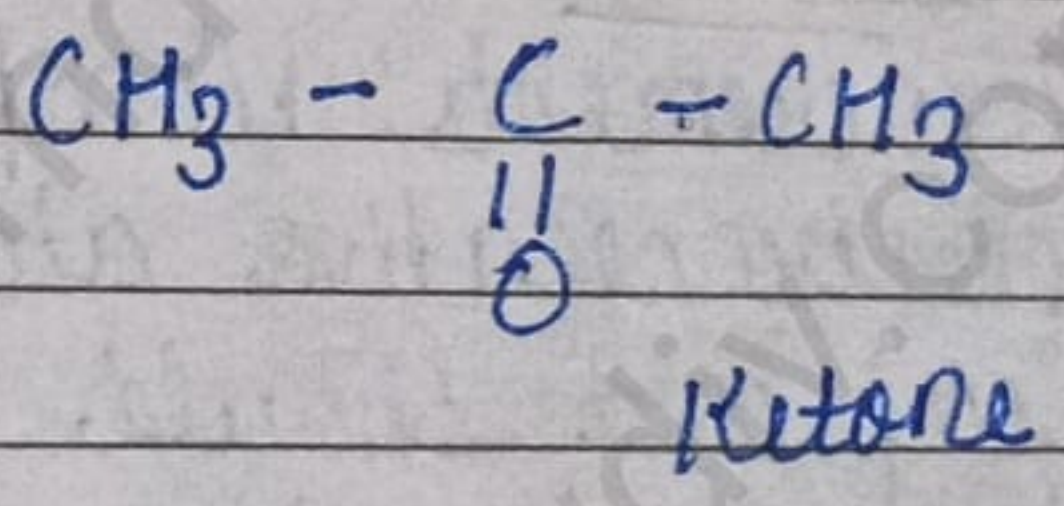 CH3 - C - CH3
||
O
Ketone